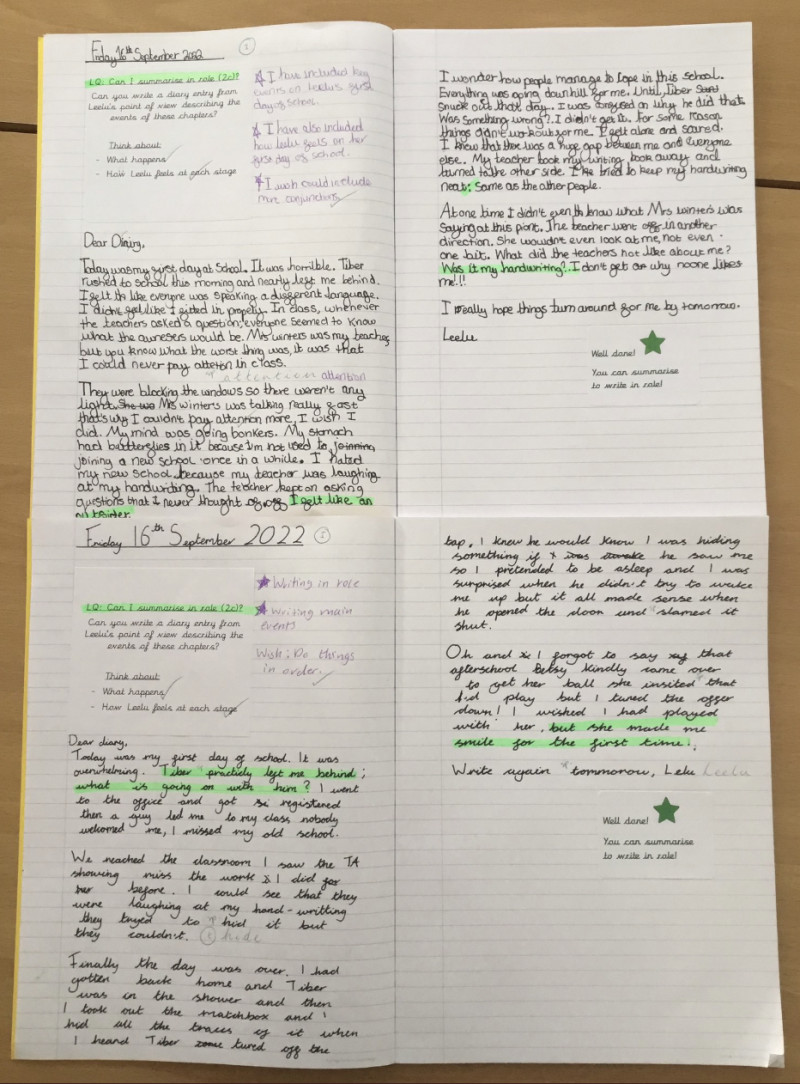 Friday 16th September 2022
LQ: Can I summarise in role (2c)?
Can you write a diary entry from
Leelu's point of view describing the
events of these chapters?
Think about:
- What happens
- How Leelu feels at each stage
I have included key
events on Leelus first
day of school.
I have also included
how leelu feels on her
first day of school.
I wish I could include
more conjunctions
Dear Diairy,
Today was my first day at School. It was horrible. Tiber
rushed to school this morning and nearly left me behind.
I felt like everyone was speaking a different language.
I didn't feel like I fitted in properly. In class, whenever
the teachers asked a question, everyone seemed to know
what the awnsers would be. Mrs winters was my teacher,
but you know what the worst thing was, it was that
I could never pay attetion in class.
attention attention
They were blocking the windows so there weren't any
light. She was Mrs winters was talking really fast
that's why I couldn't pay attention more, I wish I
did. My mind was going bonkers. My stomach
had butterflies in it because I'm not used to joinning,
joining a new school once in a while. I hated
my new school because my teacher was laughing
at my handwriting. The teacher kept on asking
questions that I never thought of off I felt like an
outsider.
I wonder how people manage to cope in this school.
Everything was going downhill for me. Until, Tiber
snuck out that day. I was confused on why he did that.
Was something wrong?. I didn't get it. For some reason
things didn't workout for me. I felt alone and scared.
I knew that there was a huge gap between me and everyone
else. My teacher took my writing book away and
turned to the other side. I've tried to keep my handwriting
neat; same as the other people.
At one time I didn't even know what Mrs winters was
saying at this piont. The teacher went off in another
direction. She wouldn't even look at me, not even
one bit. What did the teachers not like about me?
Was it my handwriting?. I don't get on why noone likes
me!!!
I really hope things turn around for me by tomorrow.
Leelu
Well done!
You can summarise
to write in role!
Friday 16th September 2022
LQ: Can I summarise in role (2c)?
Can you write a diary entry from
Leelu's point of view describing the
events of these chapters?
Think about:
- What happens
- How Leelu feels at each stage
Writing in role
Writing main
events
Wish: Do things
in order.
Dear diary,
Today was my first day of school. It was
overwhelming. Tiber practicly left me behind;
what is going on with him? I went
to the office and got registered
then a guy led me to my class, nobody
welcomed me, I missed my old school.
We reached the classroom I saw the TA
showing miss the work I did for
her before. I could see that they
were laughing at my hand-writting
they tryed to hid it but
they couldnst. hide
Finally the day was over. I had
gotten back home and Tiber
was in the shower and then
I took out the matchbox and
hid all the traces of it when
I heard Tiber tured off the
tap. I knew he would know I was hiding
something if he saw me
so I pretended to be asleep and I was
surprised when he didn't try to wake
me up but it all made sense when
he opened the door and slamed it
shut.
Oh and I forgot to say that
afterschool Betsy kindly came over
to get her ball she insited that
I'd play but I tured the offer
down! I wished I had played
with her, but she made me
smile for the first time!.
Write again tommorow, Lelu Leelu
Well done!
You can summarise
to write in role!